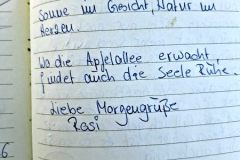 Sonne im Gesicht, Natur im
Herzen.
Wo die Apfelallee erwacht,
findet auch die Seele Ruhe.
Liebe Morgengrüße
Rosi
6